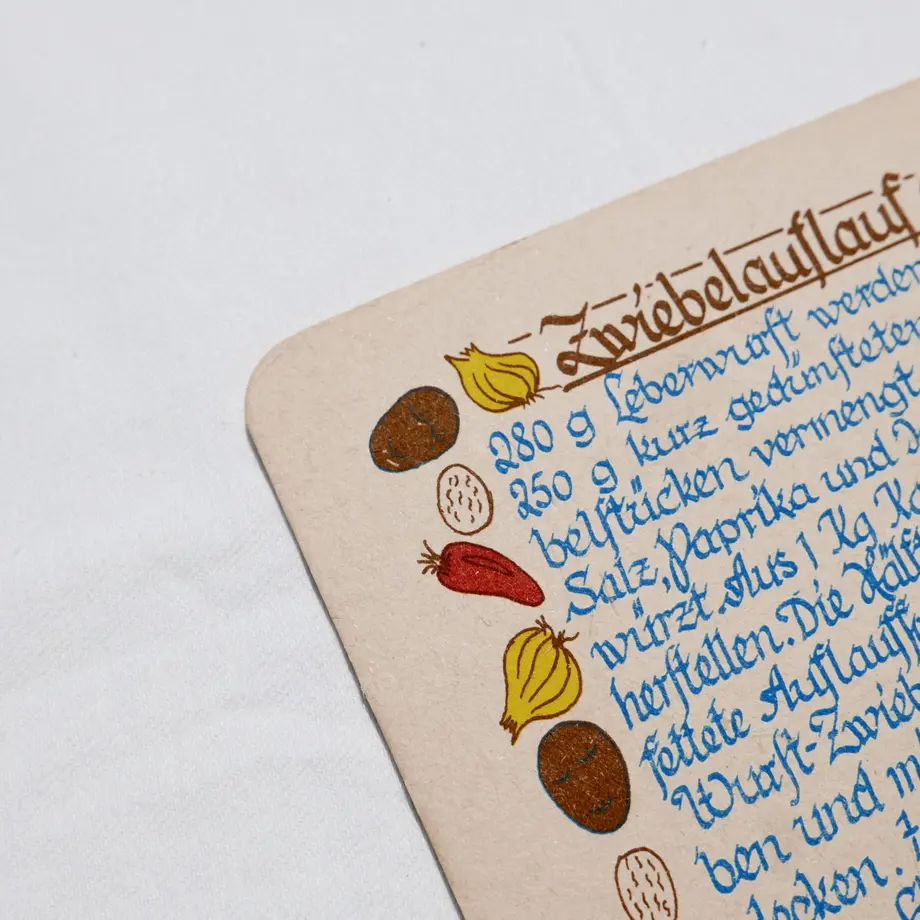 Zwiebelauflauf
280 g Leberwurst werden
250 g kurz gedünsteten
belstücken vermengt
Salz, Paprika und
würzt. Aus 1 Kg
herstellen. Die Hälf
fettete Auflauff
Wurst-Zwieb
ben und m
locken.